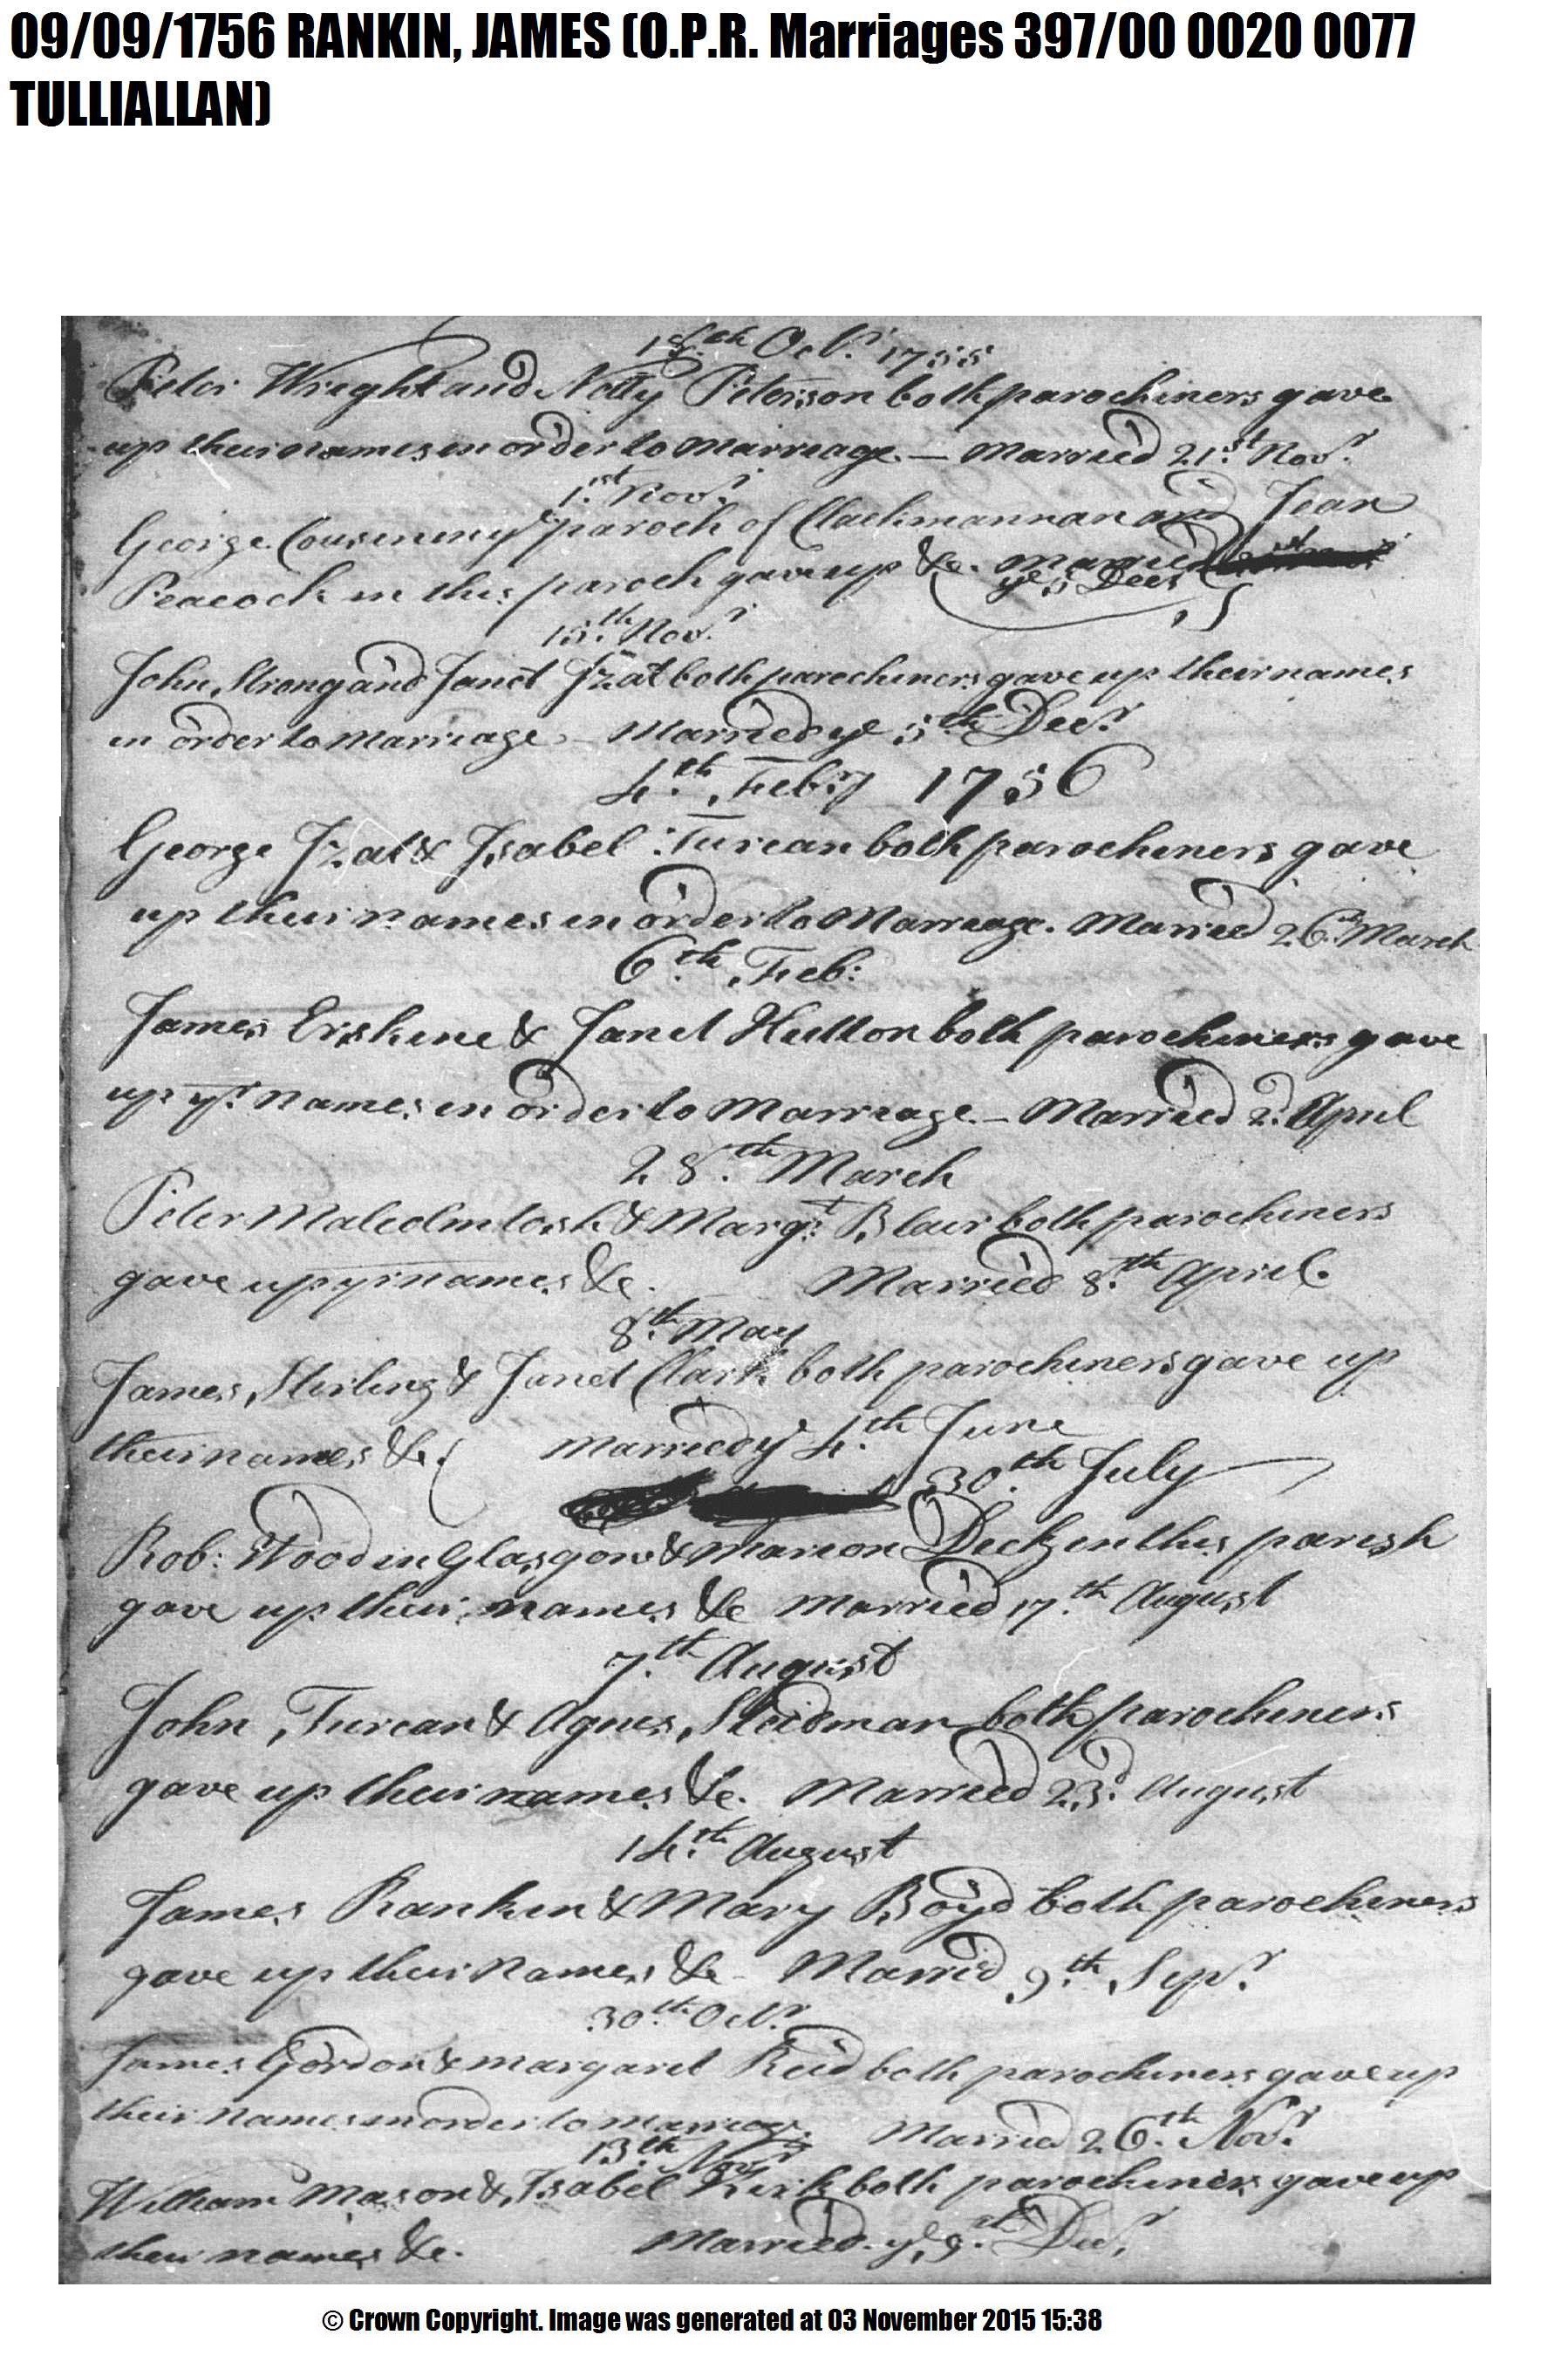 09/09/1756 RANKIN, JAMES (O.P.R. Marriages 397/00 0020 0077
TULLIALLAN)
18th Octr 1755
Peter Wright and Netty Peterson both parochiners gave
up their names in order to Marriage. — Married 21st Novr
1st Novr
George paroch of Clackmannan and Jean
Peacock in this paroch gave up &c. Married
ye 5 Decr
15th Novr
John Strong and Janet Izat both parochiners gave up their names
in order to Marriage — Married ye 5th Decr
4th Febry 1756
George Izat & Isabel Turcan both parochiners gave
up their names in order to Marriage. Married 26th March
6th Feb:
James Erskine & Janet Hutton both parochiners gave
up yr names in order to Marriage. — Married 2d April
28th March
Peter Malcolmtosh & Margt Blair both parochiners
gave up yr names &c. Married 8th April.
8th May
James Stirling & Janet Clark both parochiners gave up
their names &c. Married ye 4th June
30th July
Rob: Wood in Glasgow & Marion Dick in this parish
gave up their names &c Married 17th August
7th August
John Turcan & Agnes Steidman both parochiners
gave up their names &c. Married 23d August
14th August
James Rankin & Mary Boyd both parochiners
gave up their names &c - Married 9th Sepr
30th Octr
James Gordon & Margaret Reid both parochiners gave up
their names in order to marriage. Married 26th Novr
13th Novr
William Mason & Isabel Kirk both parochiners gave up
their names &c. Married ye 9th Decr
© Crown Copyright. Image was generated at 03 November 2015 15:38